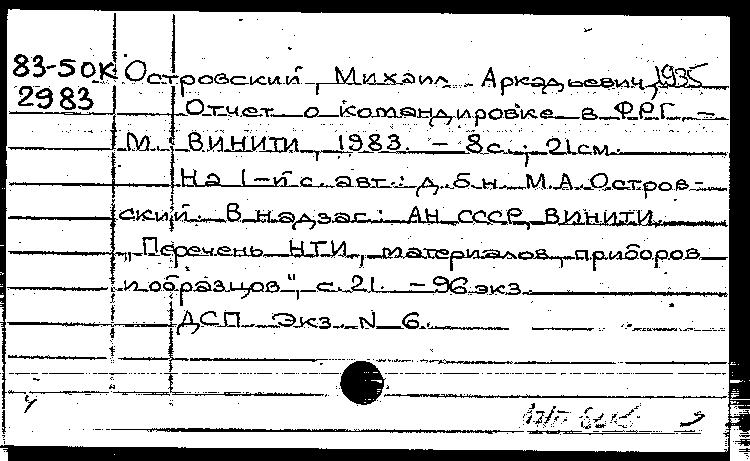 83-5ОК Островский, Михаил Аркадьевич, 1935
2983 Отчет о командировке в ФРГ. –
М.: ВИНИТИ, 1983. – 8с.; 21см.
На 1-й с. авт.: д.б.н. М.А.Остров-
ский. В надзаг.: АН СССР, ВИНИТИ.
„Перечень НТИ, материалов, приборов
и образцов", с.21. – 96экз.
ДСП Экз. N 6.